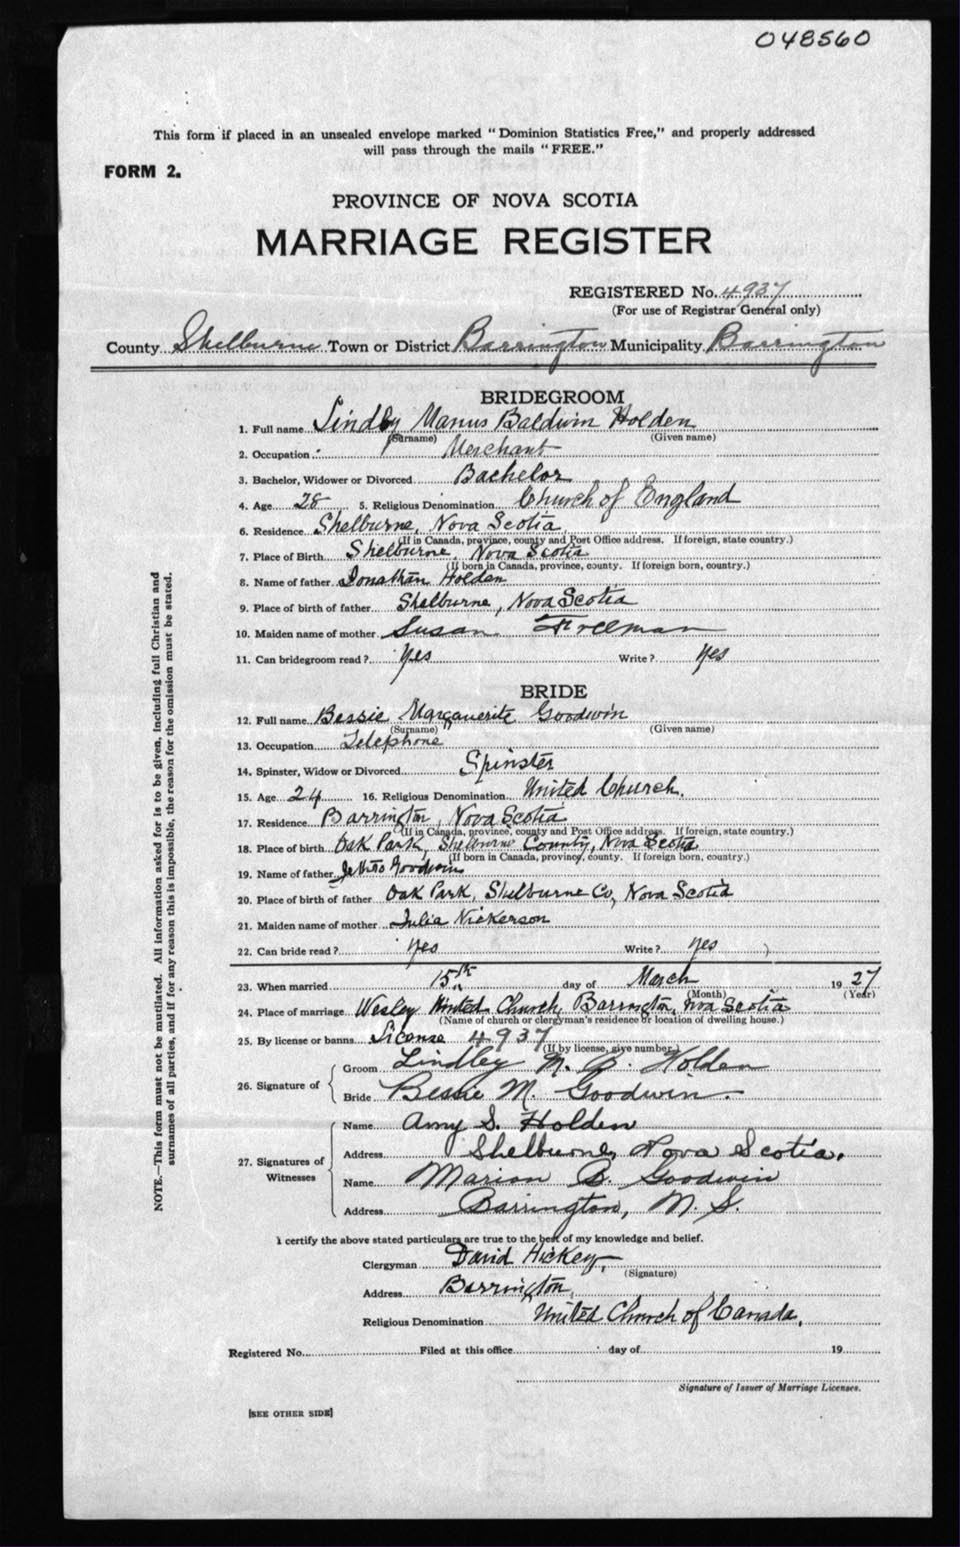 048560
This form if placed in an unsealed envelope marked "Dominion Statistics Free," and properly addressed
will pass through the mails "FREE."
FORM 2.
PROVINCE OF NOVA SCOTIA
MARRIAGE REGISTER
REGISTERED No. 4937
(For use of Registrar General only)
County Shelburne Town or District Barrington Municipality Barrington
BRIDEGROOM
1. Full name Lindley Manus Baldwin Holden
(Surname) (Given name)
2. Occupation Merchant
3. Bachelor, Widower or Divorced Bachelor
4. Age 28 5. Religious Denomination Church of England
6. Residence Shelburne, Nova Scotia
(If in Canada, province, county and Post Office address. If foreign, state country.)
7. Place of Birth Shelburne, Nova Scotia
(If born in Canada, province, county. If foreign born, country.)
8. Name of father Jonathan Holden
9. Place of birth of father Shelburne, Nova Scotia
10. Maiden name of mother Susan Freeman
11. Can bridegroom read? Yes Write? Yes
BRIDE
12. Full name Bessie Marguerite Goodwin
(Surname) (Given name)
13. Occupation Telephone
14. Spinster, Widow or Divorced Spinster
15. Age 24 16. Religious Denomination United Church.
17. Residence Barrington, Nova Scotia
(If in Canada, province, county and Post Office address. If foreign, state country.)
18. Place of birth Oak Park, Shelburne County, Nova Scotia
(If born in Canada, province, county. If foreign born, country.)
19. Name of father Jethro Goodwin
20. Place of birth of father Oak Park, Shelburne Co, Nova Scotia
21. Maiden name of mother Julia Nickerson
22. Can bride read? Yes Write? Yes
23. When married 15th day of March 1927
(Month) (Year)
24. Place of marriage Wesley United Church, Barrington, Nova Scotia
(Name of church or clergyman's residence or location of dwelling house.)
25. By license or banns License 4937
(If by license, give number.)
26. Signature of
Groom Lindley M. B. Holden
Bride Bessie M. Goodwin.
27. Signatures of Witnesses
Name Amy S. Holden
Address Shelburne, Nova Scotia.
Name Marion B. Goodwin
Address Barrington, N. S.
I certify the above stated particulars are true to the best of my knowledge and belief.
Clergyman David Hickey,
(Signature)
Address Barrington,
Religious Denomination United Church of Canada,
Registered No. Filed at this office day of 19
Signature of Issuer of Marriage Licenses.
[SEE OTHER SIDE]
NOTE.—This form must not be mutilated. All information asked for is to be given, including full Christian and
surnames of all parties, and if for any reason this is impossible, the reason for the omission must be stated.